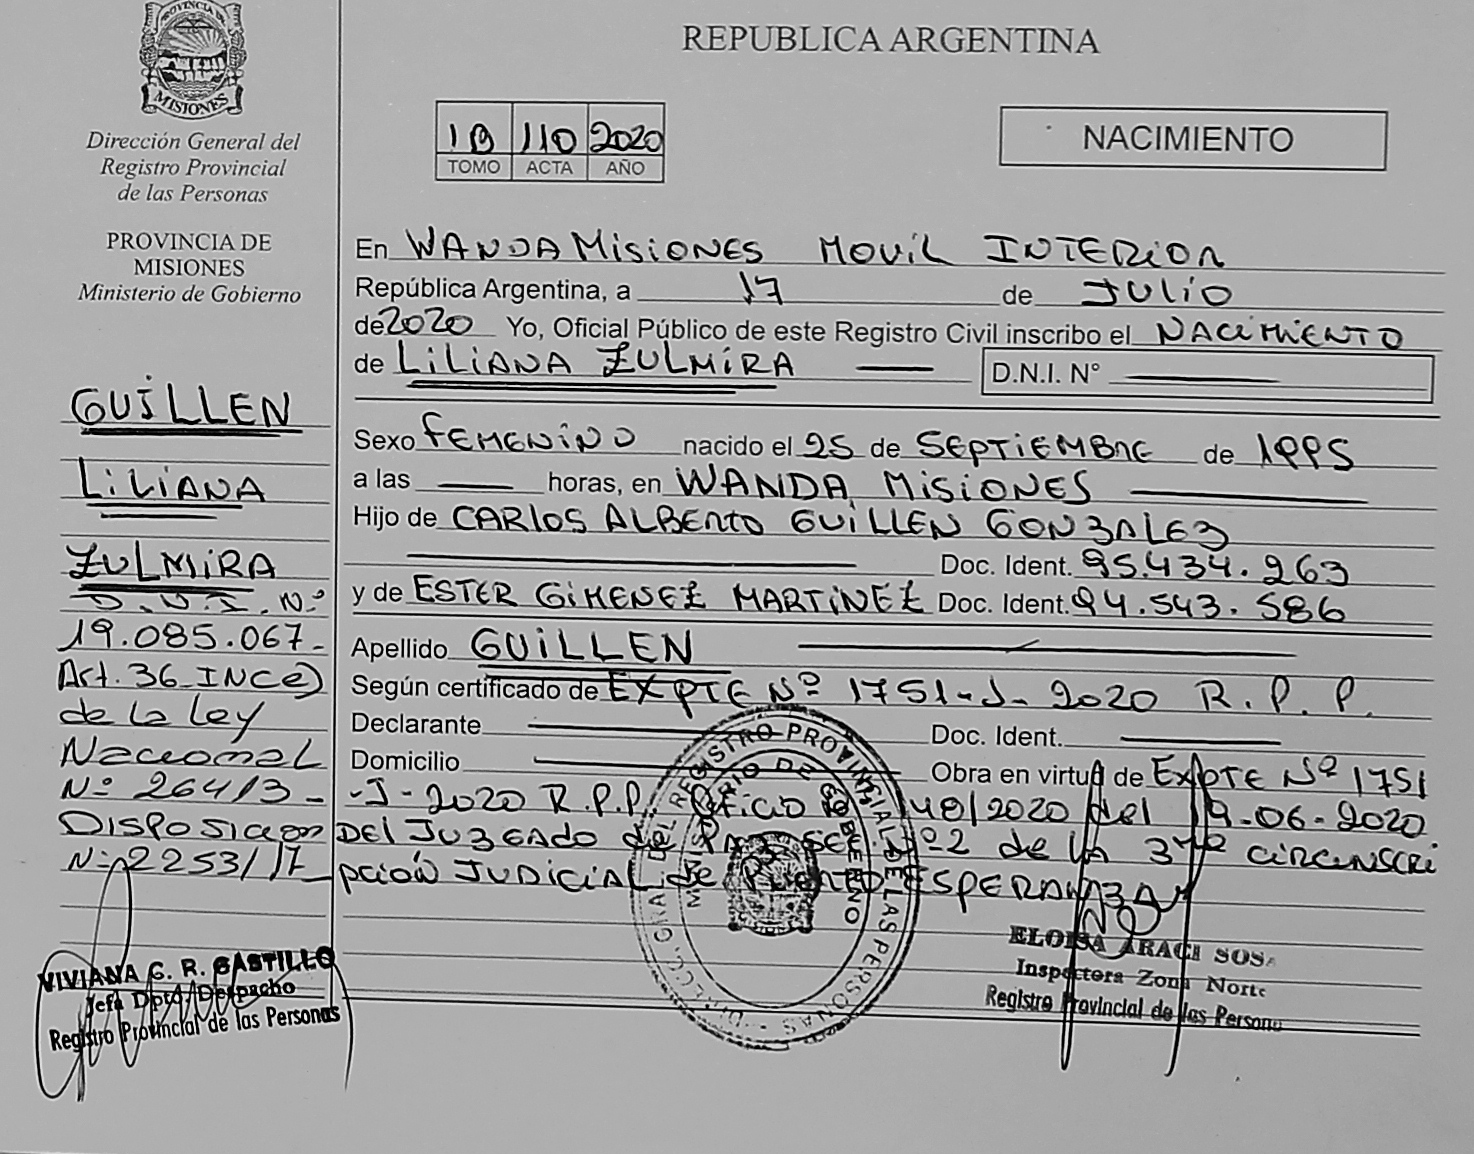 PROVINCIA DE
MISIONES
Dirección General del
Registro Provincial
de las Personas
PROVINCIA DE
MISIONES
Ministerio de Gobierno
GUILLEN
LILIANA
ZULMIRA
D.N.I. Nº
19.085.067-
Art. 36 INC e)
de la Ley
Nacional
Nº 26413-
Disposicion
Nº 2253/17
VIVIANA G. R. CASTILLO
Jefa Dpto. Despacho
Registro Provincial de las Personas
REPUBLICA ARGENTINA
110 2020
TOMO ACTA AÑO
NACIMIENTO
En WANDA MISIONES MOVIL INTERIOR
República Argentina, a 17 de JULIO
de 2020 Yo, Oficial Público de este Registro Civil inscribo el NACIMIENTO
de LILIANA ZULMIRA D.N.I. N°
Sexo FEMENINO nacido el 25 de SEPTIEMBRE de 1995
a las horas, en WANDA MISIONES
Hijo de CARLOS ALBERTO GUILLEN GONZALEZ
Doc. Ident. 95.434.263
y de ESTER GIMENEZ MARTINEZ Doc. Ident. 94.543.586
Apellido GUILLEN
Según certificado de EXPTE Nº 1751-J-2020 R.P.P.
Declarante Doc. Ident.
Domicilio Obra en virtud de EXPTE Nº 1751
-J-2020 R.P.P. Oficio 48/2020 del 19-06-2020
DEL JUZGADO de PAZ SEC. Nº2 de la 3ra CIRCUNSCRI
PCIÓN JUDICIAL de PUERTO ESPERANZA
DIRECC. GRAL. DEL REGISTRO PROVINCIAL DE LAS PERSONAS
MINISTERIO DE GOBIERNO
ELOISA ARACI SOSA
Inspectora Zona Norte
Registro Provincial de las Persona